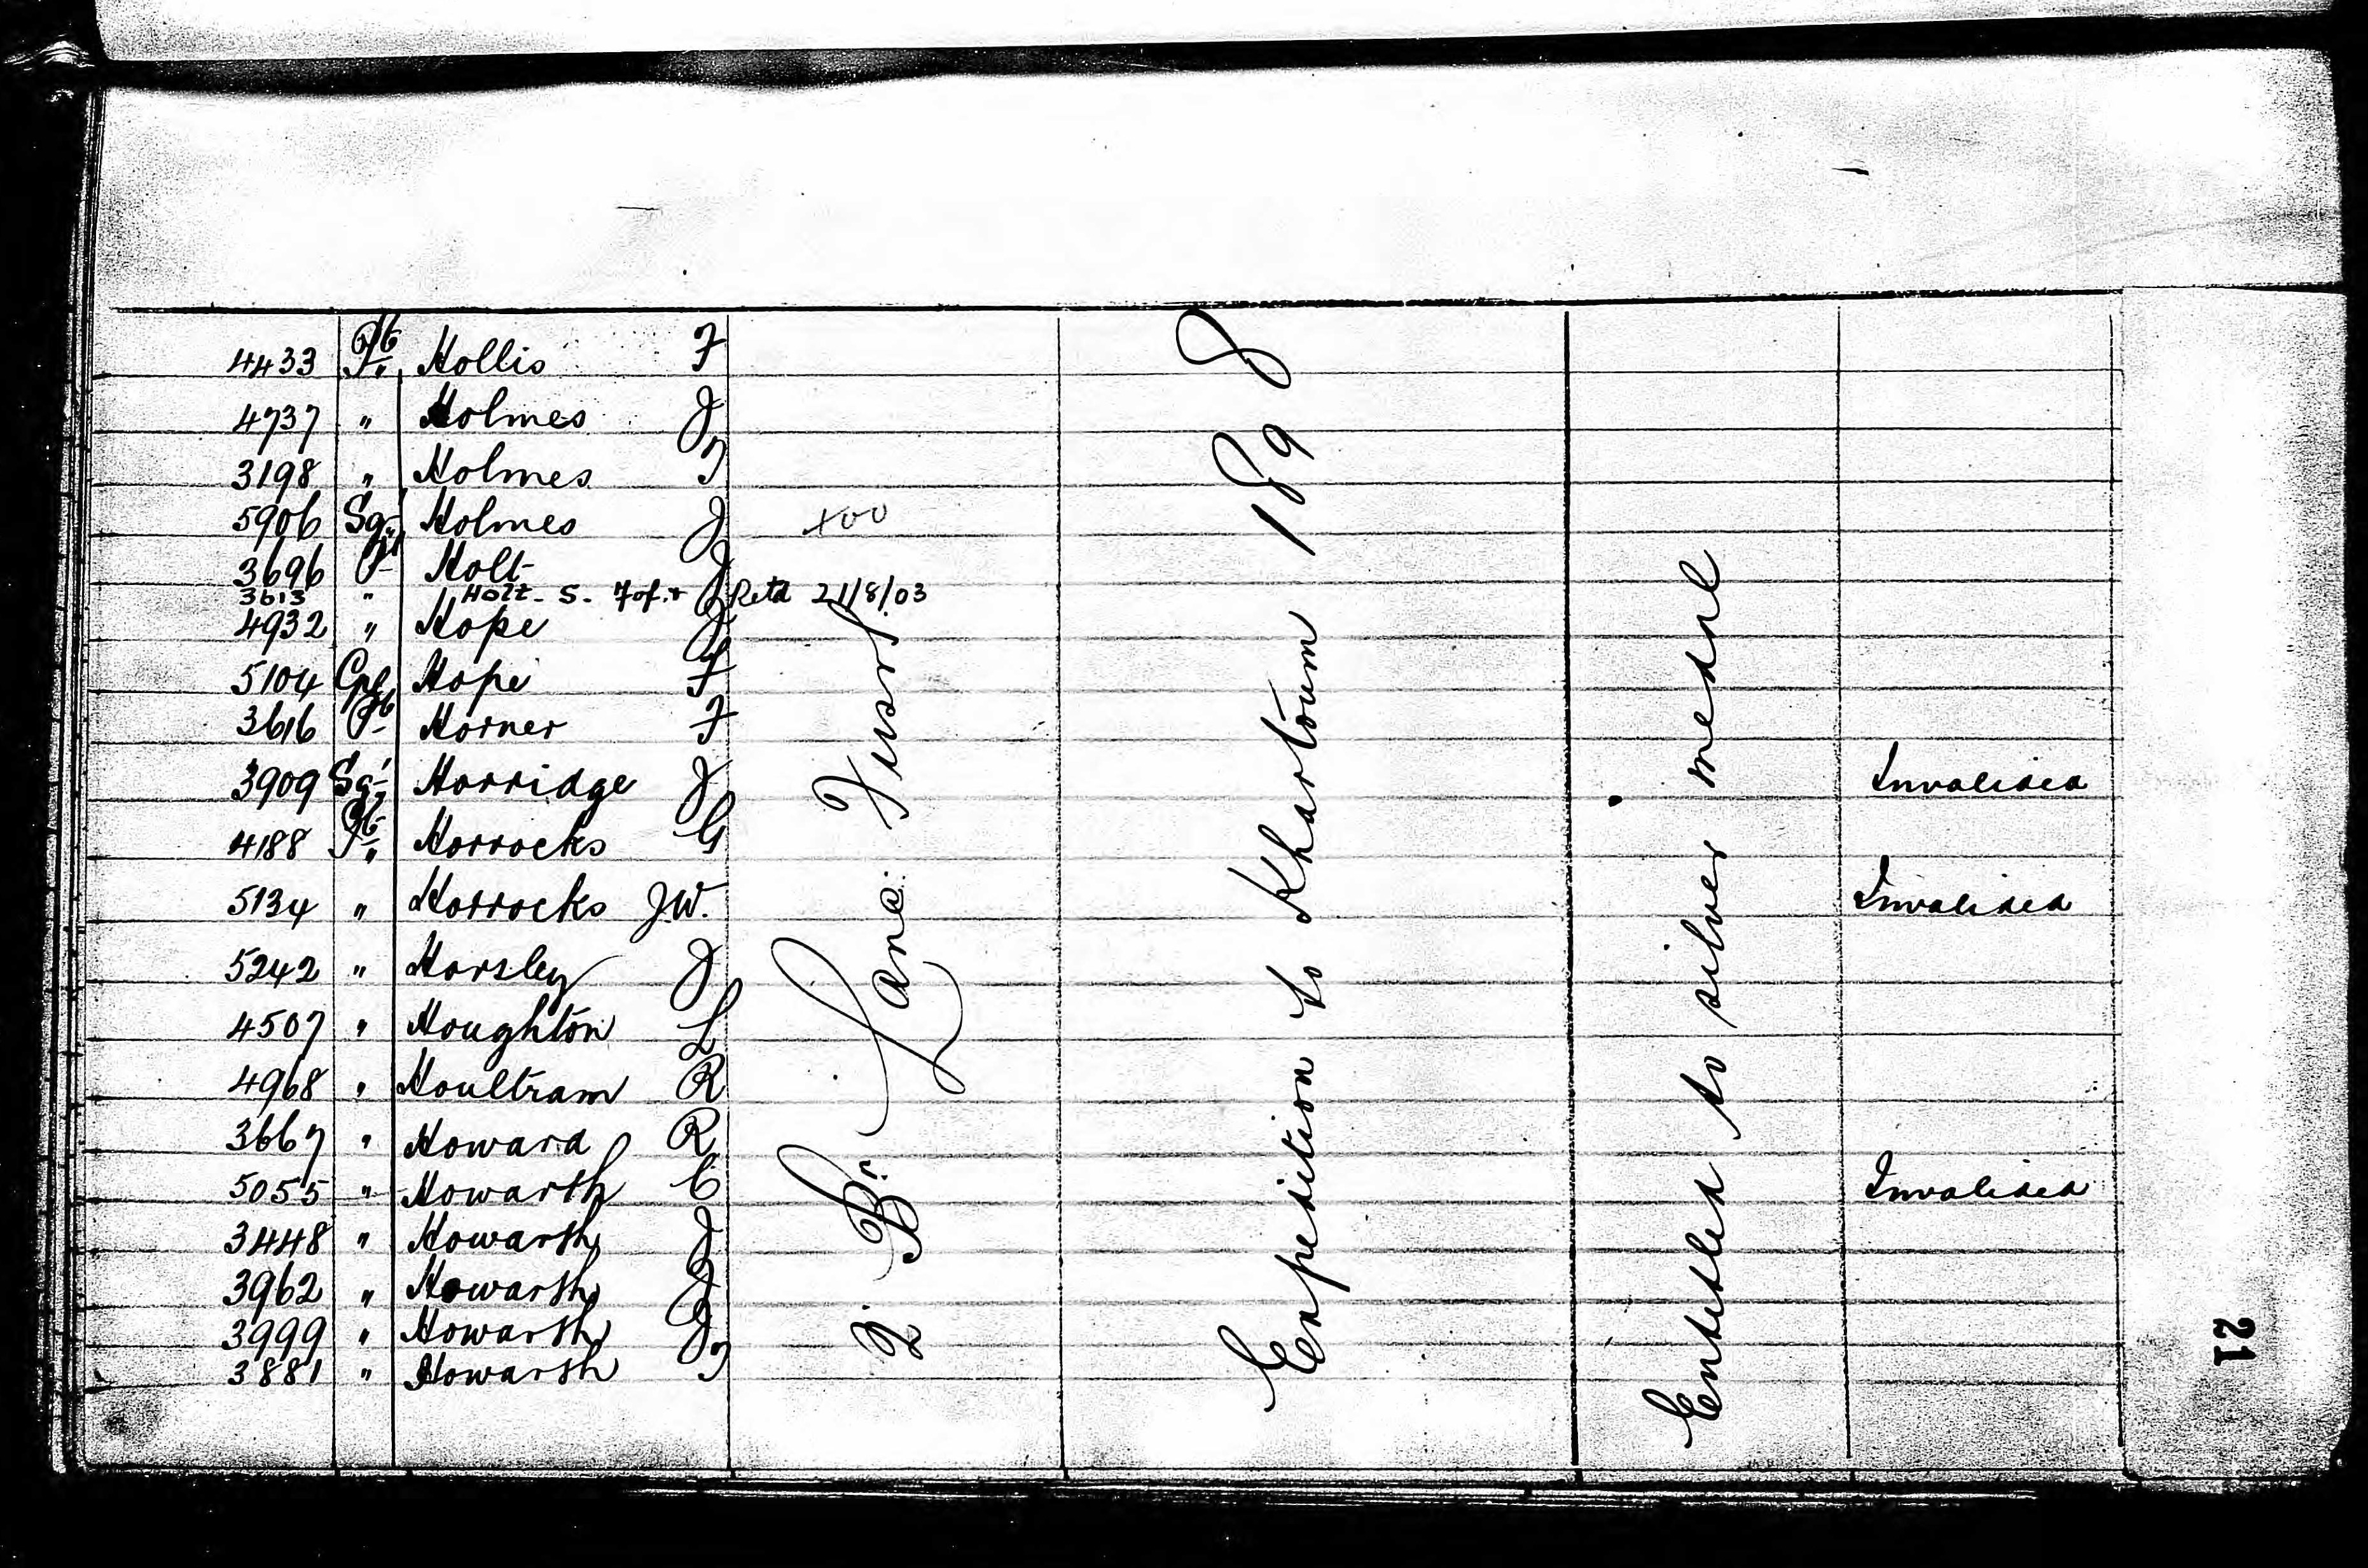 4433 Pte Hollis F
4737 " Holmes J
3198 " Holmes T
5906 Sgt Holmes J
3696 Pte Holt J
3613 " Holt S. Retd 21/8/03
4932 " Hope J
5104 Cpl Hope F
3616 Pte Horner F
3909 Sgt Horridge J Invalided
4188 Pte Horrocks G
5134 " Horrocks J.W. Invalided
5242 " Horsley J
4507 " Houghton L
4968 " Houltram R
3667 " Howard R
5055 " Howarth C Invalided
3448 " Howarth J
3962 " Howarth J
3999 " Howarth J
3881 " Howarth T
2. Bn Lanc: Fusrs.
Expedition to Khartoum 1898
Entitled to silver medal
21